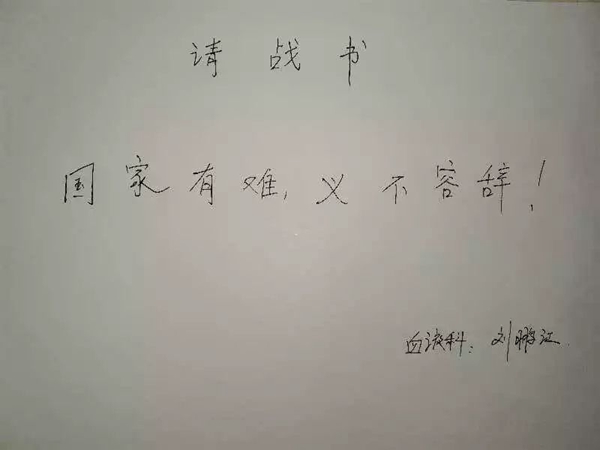 请战书
国家有难,义不容辞!
血液科: 刘鹏